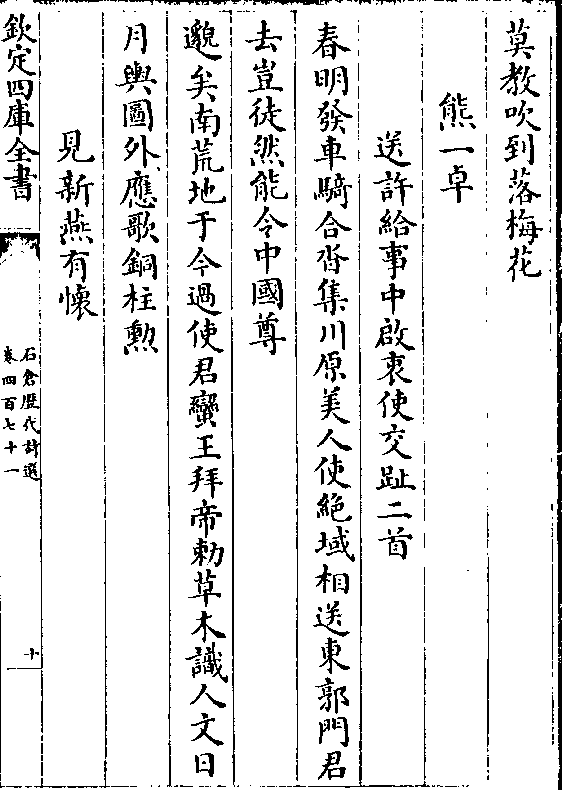 莫教吹到落梅花
熊一卓
送許給事中啟衷使交趾二首
春明發車騎合沓集川原美人使絶域相送東郭門君
去豈徒然能令中國尊
邈矣南荒地于今過使君蠻王拜帝勅草木識人文日
月輿圖外應歌銅柱勲
見新燕有懷
欽定四庫全書
石倉歷代詩選
卷四百七十一
十